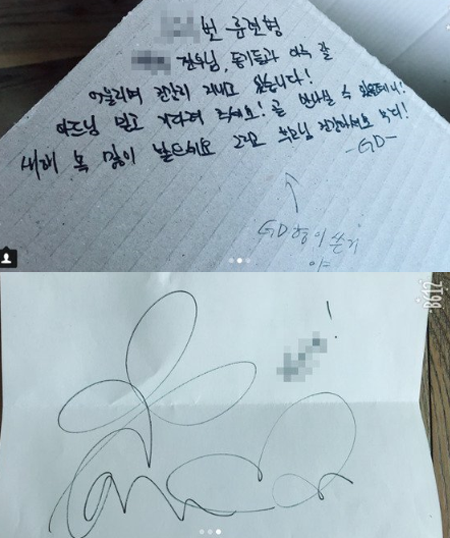 번 훈련병
전우님, 동기들과 아주 잘
어울리며 건강히 지내고 있습니다!
아드님 믿고 기다려 주세요! 곧 만나실 수 있을테니!
새해 복 많이 받으세요 그리고 부모님 건강하세요
-GD-
GD형이 쓴거
야
!
B612